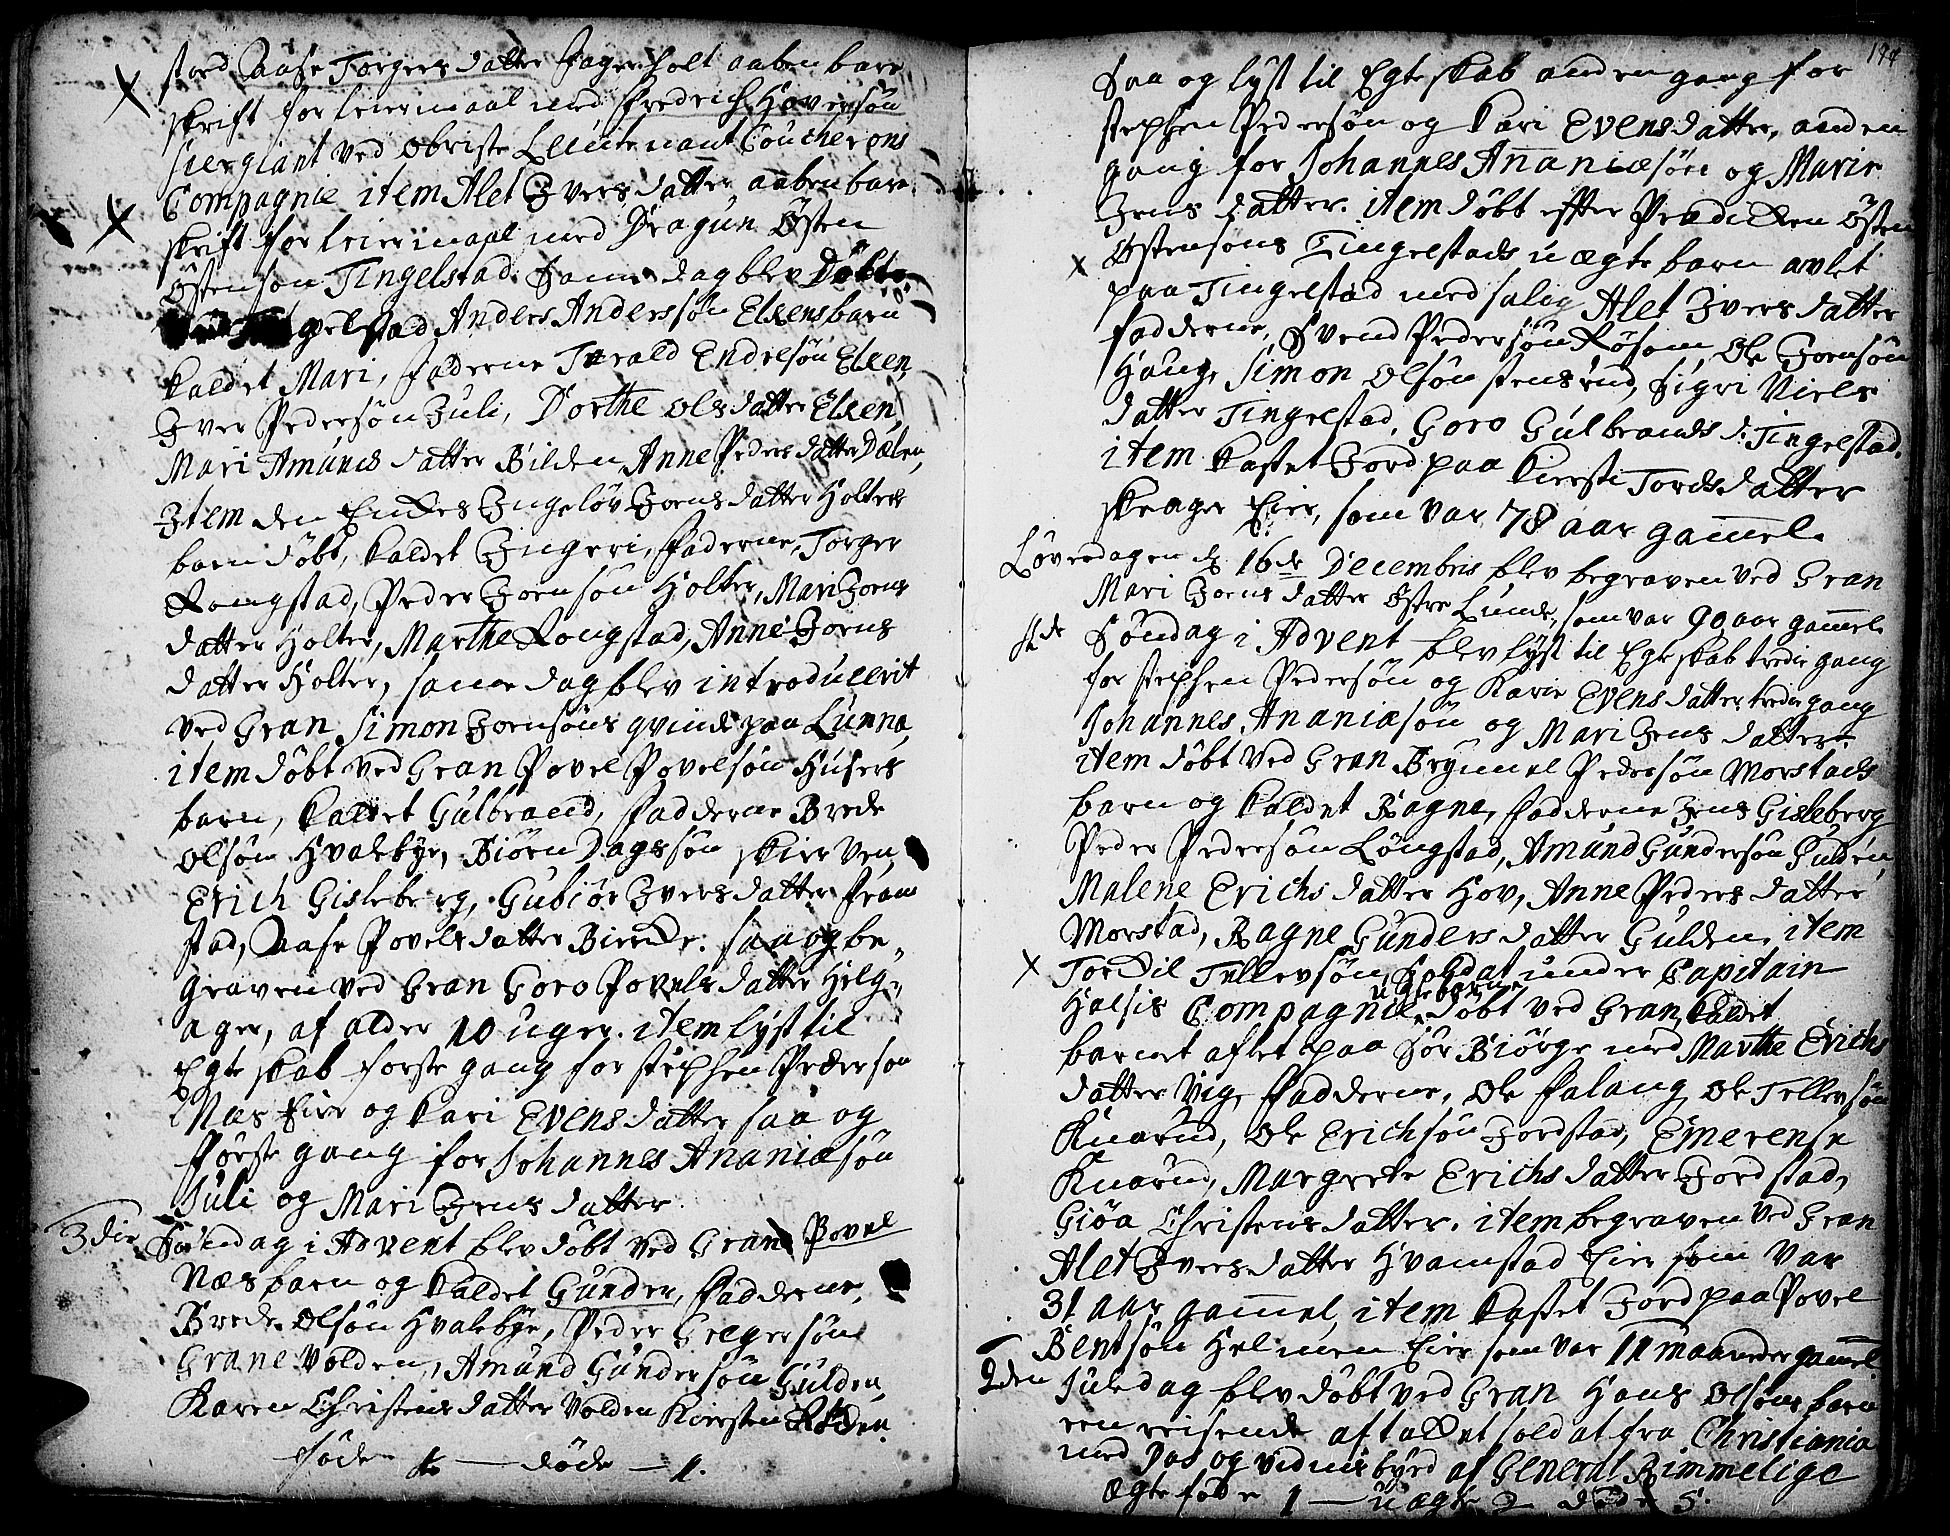 stod Aase Torgersdatter Fagerholt aabenbare
skrift for leiermaal med Fredrich Haversøn
siergiant ved obriste Leutenant Coucherons
Compagnie item Alet Iversdatter aabenbare
skrift for leiermaal med Dragun Østen
Østensøn Tingelstad. Same dag blev Døbt
gelstad Anders Anderssøn Ekens barn
kaldet Mari, faderne Harald Endresøn Eken,
Iver Pedersøn Juli, Dorthe Olsdatter Eken,
Mari Amunds datter Bilden, Anne Pedersdatter Dælen,
Item den Enckes Ingeløv Joensdatter Holters
barn døbt, kaldet Ingeri, faderne, Torger
Rongstad, Peder Joensøn Holter, Mari Joens
datter Holter, Marthe Rongstad, Anne Joens
datter Holter, same dag blev introducerit
ved Gran Simon Joensøns qvinde paa Lunna,
item døbt ved Gran Povel Povelsøn Husers
barn, kaldet Gulbrand, fadderne Brede
Olsøn Hvalebye, Biørn Dagssøn Skierven
Erich Gisleberg, Gubiør Iversdatter Fram
stad, Aase Povelsdatter Biercke. saa og be-
graven ved Gran Goro Povelsdatter Helg-
ager, af alder 10 uger. item lyst til
Egteskab førstegang for Stephen Pedersøn
Næs Eier og Kari Evensdatter saa og
første gang for Johannes Ananiæsøn
Juli og Mari Jensdatter.
3die Søndag i Advent blev døbt ved Gran Povel
Næs barn og kaldet Gunder, fadderne,
Brede Olsøn Hvalebye, Peder Gregersøn
Granevolden, Amund Gundersøn Gulden,
Karen Christensdatter Volden Kiersten
føde — døde — 1.
194
Saa og lyst til Egteskab anden gang for
Stephen Pedersøn og Kari Evensdatter, anden
gang for Johannes Ananiæsøn og Marie
Jens datter. item døbt effter Prædicken Østen
Østensøns Tingelstads uægte barn avlet
paa Tingelstad med salig Alet Iversdatter
fadderne, Svend Pedersøn Røsom, Ole Joensøn
Haug, Simon Olsøn Stensrud, Sigri Niels
datter Tingelstad, Goro Gulbrands d: Tingelstad.
item kastet Jord paa Kiersti Tordsdatter
Skager Eier, som var 78 aar gammel.
Løverdagen d 16de Decembris blev begraven ved Gran
Mari Joens datter østre Lunde, som var 90 aar gammel
4de Søndag i Advent blev lyst til Egteskab tredie gang
for Stephen Pedersøn og Karie Evensdatter tredie gang
Johannes Ananiæsøn og Mari Jens datter.
item døbt ved Gran Brynnel Pedersøn Morstads
barn og kaldet Ragne, fadderne Jens Gisleberg
Peder Pedersøn Longstad, Amund Gundersøn Gulden
Malene Erichs datter Hov, Anne Peders datter
Morstad, Ragne Gunders datter Gulden, item
Torkil Tellevsøn, Soldat under Capitain
uegtebarn
Halsis Compagnie, døbt ved Gran, kaldet
barnet aflet paa Sør Biørge med Marthe Erichs
datter Vig, fadderne, Ole Falang, Ole Tellevsøn
Knarud, Ole Erichsøn Jordstad, Emerense
Knarud, Margrete Erichs datter Jordstad,
Giøa Christensdatter. item begraven ved Gran
Alet Iversdatter Hvamstad Eier som var
31 aar gammel, item kastet Jord paa Povel
Bentsøn Helmen Eier som var 11 maaneder gammel
2den Juledag blev døbt ved Gran Hans Olsøns barn
een reisende aftacket soldat fra Christiania
med Pas og vidnisbyrd af General Rimmelige
Ægte føde 1 — uægte 2 døde 5.